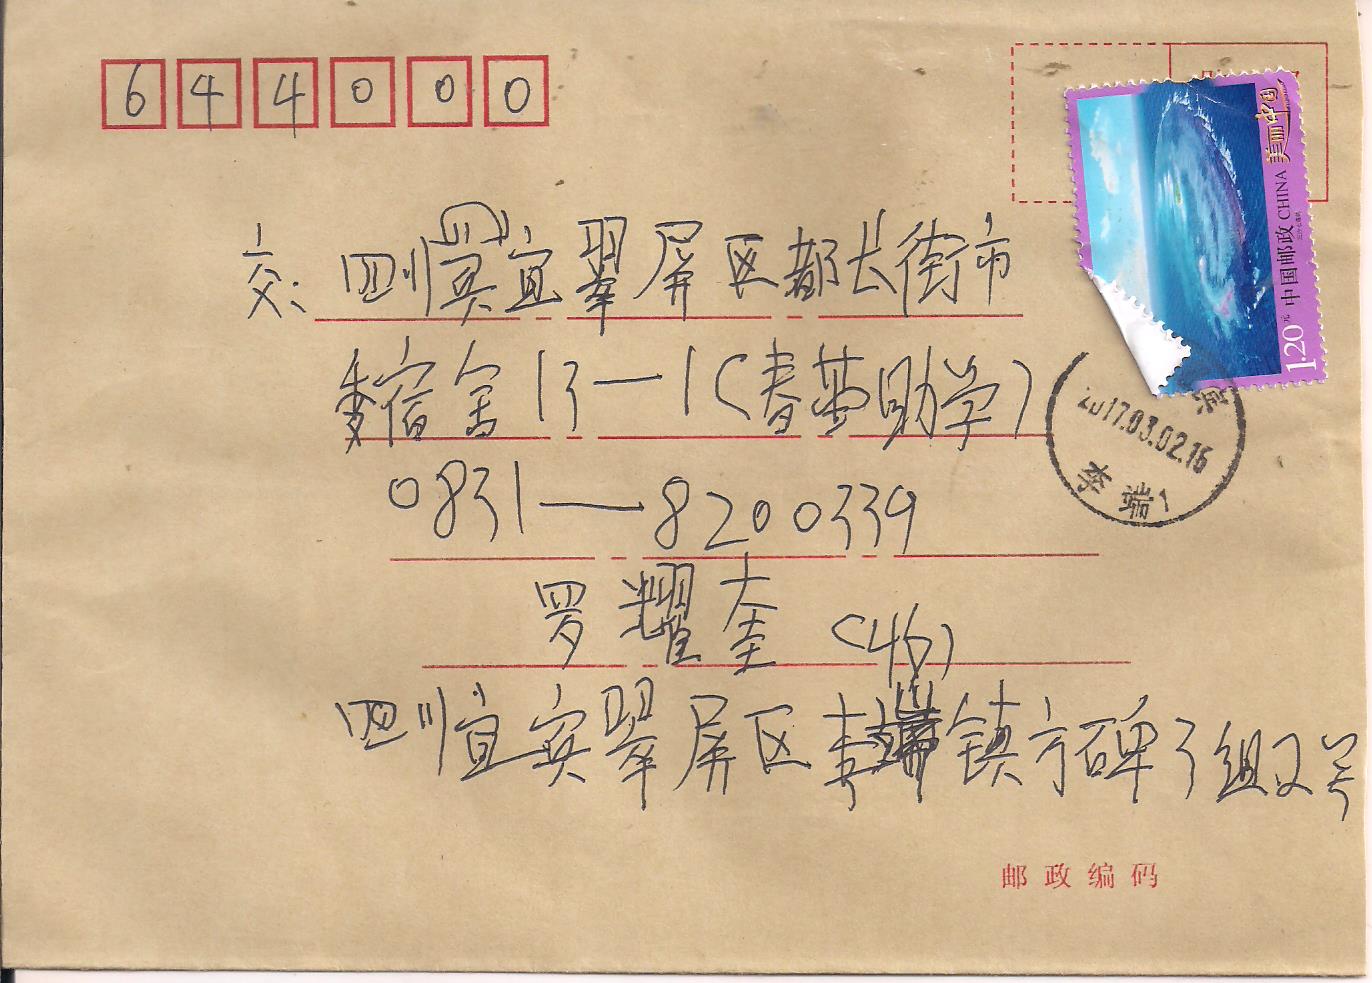 644000
美丽中国
中国邮政 CHINA
1.20元
交:四川宾宜翠屏区都长街市
委宿舍13—1(春苗助学)
2017.03.02.16
李端1
0831—8200339
罗耀奎(46)
四川宜宾翠屏区李端镇方碑3组22号
邮政编码